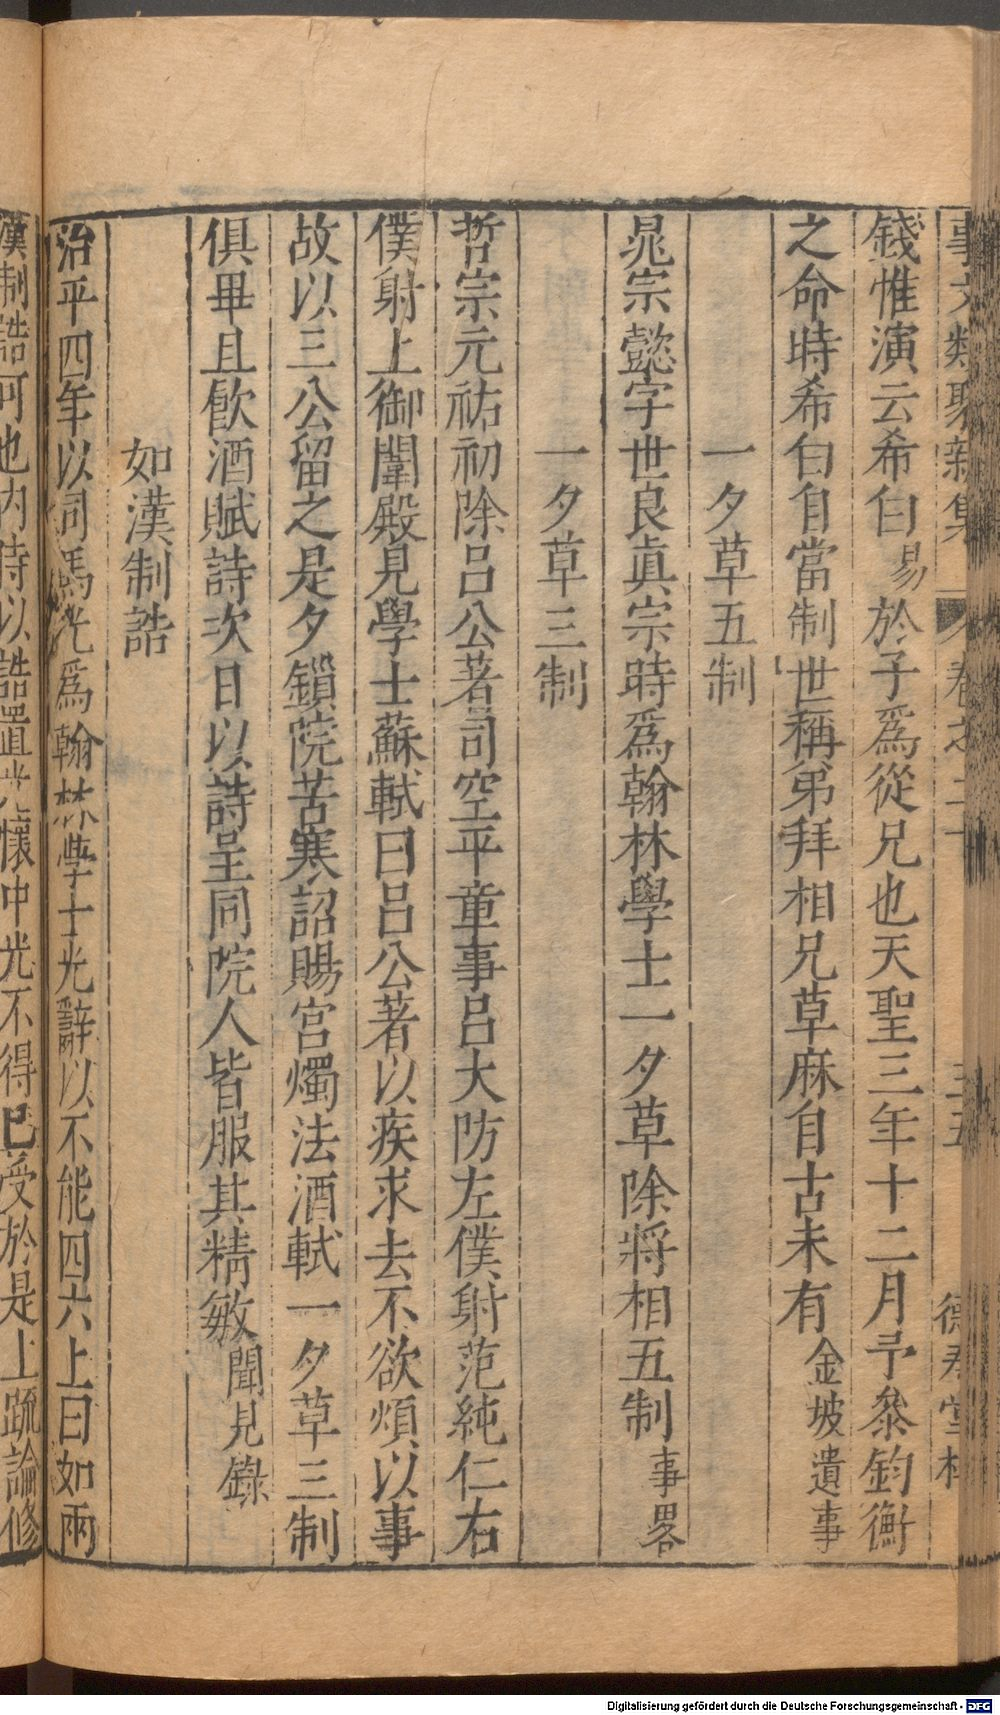 事文類聚新集 卷之二十 三五 德壽堂梓
錢惟演云希白易於予爲從兄也天聖三年十二月予叅鈞衡
之命時希白自當制世稱弟拜相兄草麻自古未有金坡遺事
一夕草五制
晁宗懿字世良眞宗時爲翰林學士一夕草除將相五制事畧
一夕草三制
哲宗元祐初除呂公著司空平章事呂大防左僕射范純仁右
僕射上御闈殿見學士蘇軾曰呂公著以疾求去不欲煩以事
故以三公留之是夕鎖院苦寒詔賜宮燭法酒軾一夕草三制
俱畢且飮酒賦詩次日以詩呈同院人皆服其精敏聞見錄
如漢制誥
治平四年以司馬光爲翰林學士光辭以不能四六上曰如兩
漢制誥可也內侍以誥置光懷中光不得已受於是上䟽論修
Digitalisierung gefördert durch die Deutsche Forschungsgemeinschaft - DFG